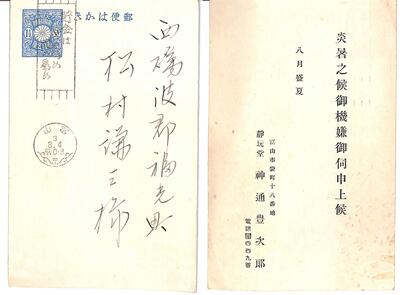 郵便はかき
西礪波郡福光町
松村謙三様
富山
3
8.4
炎暑之候御機嫌御伺申上候
八月盛夏
富山市袋町十八番地
静玩堂 神通豊次郎